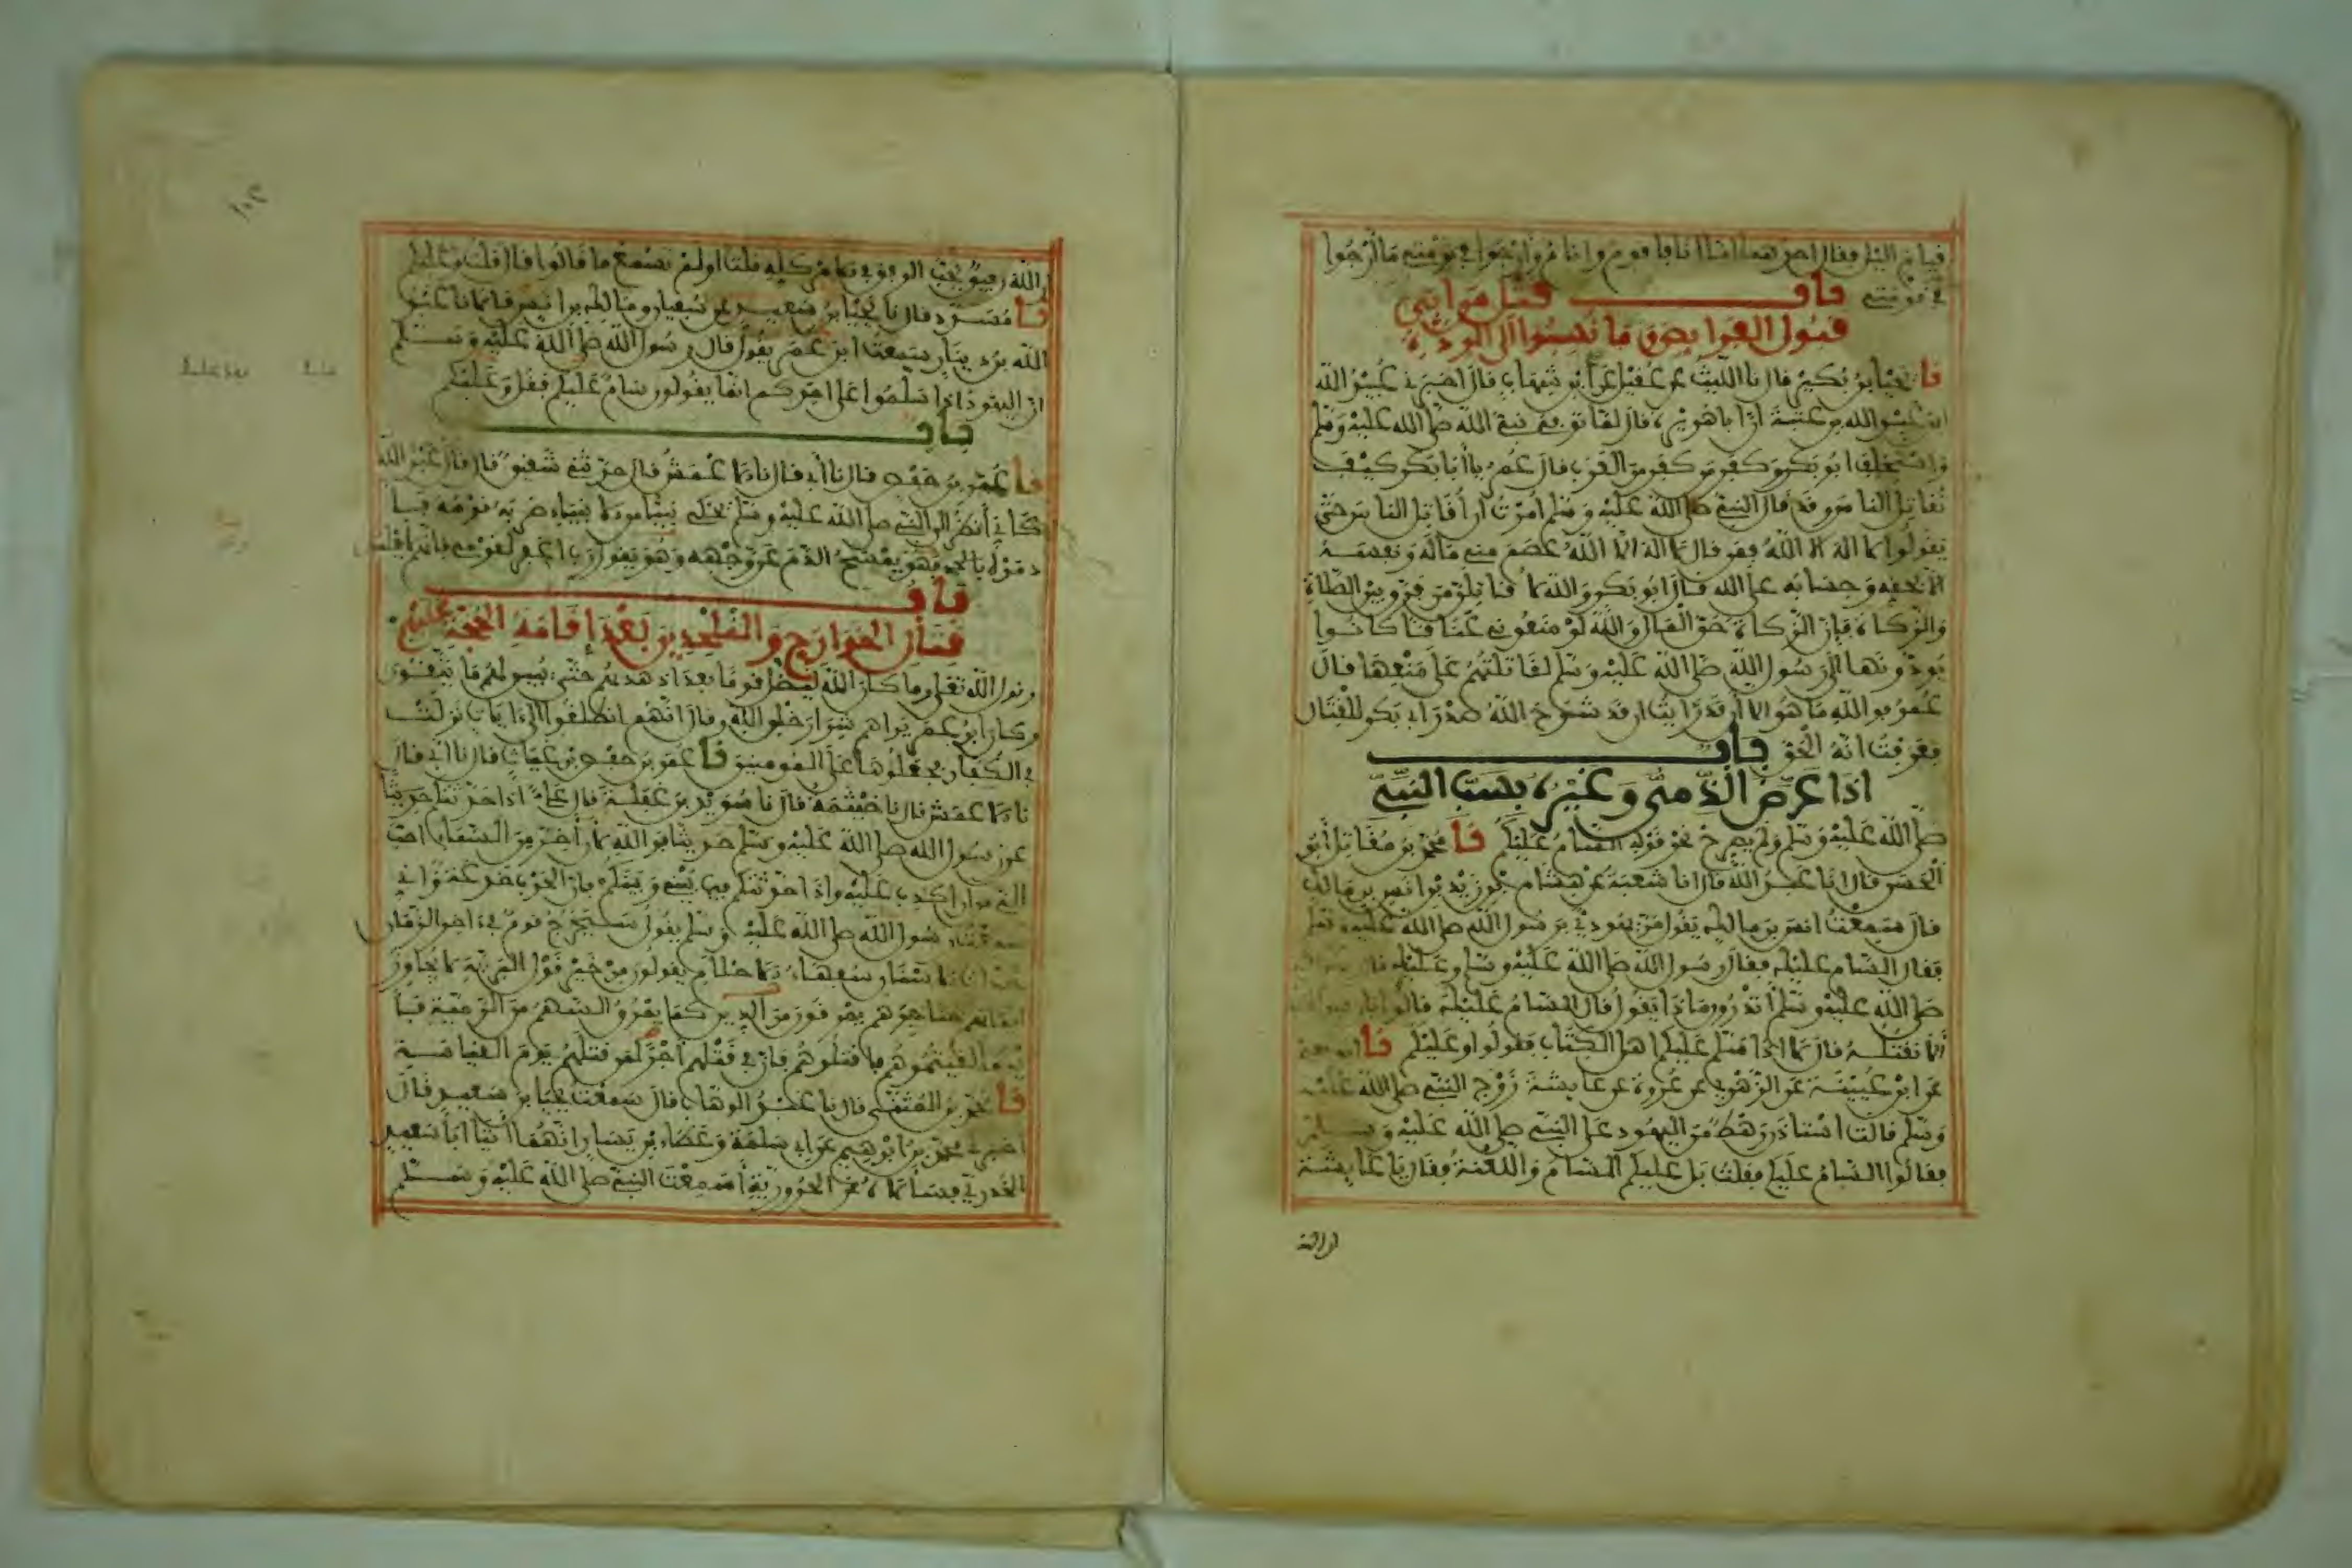 في قومته باب قتل من ابى
قبول الفرايض وما نسبوا الى الردة
نا يحيا بن بكير قال نا الليث عن عقيل عن ابن شهاب قال اخبرني عبيد الله
ابن عبد الله بن عتبة ان ابا هريرة قال لما توفي نبي الله صلى الله عليه وسلم
واستخلف ابو بكر وكفر من كفر من العرب قال عمر يا ابا بكر كيف
تقاتل الناس وقد قال النبي صلى الله عليه وسلم امرت ان اقاتل الناس حتى
يقولوا لا اله الا الله فمن قال لا اله الا الله عصم مني ماله ونفسه
الا بحقه وحسابه على الله قال ابو بكر والله لا قاتلن من فرق بين الصلاة
والزكاة فإن الزكاة حق المال والله لو منعوني عناقا كانوا
يودونها الى رسول الله صلى الله عليه وسلم لقاتلتهم على منعها قال
عمر فوالله ما هو الا ان قد رايت ان قد شرح الله صدر ابي بكر للقتال
فعرفت انه الحق باب
اذا عرض الذمي وغيره بسب النبي
صلى الله عليه وسلم ولم يصرح نحو قوله السام عليكم نا محمد بن مقاتل ابو
الحسن قال انا عبد الله قال انا شعبة عن هشام بن زيد بن انس بن مالك
قال سمعت انس بن مالك يقول مر يهودي برسول الله صلى الله عليه وسلم
فقال السام عليك فقال رسول الله صلى الله عليه وسلم وعليك قال
صلى الله عليه وسلم اتدرون ماذا يقول قال السام عليك قالوا يا رسول الله
الا نقتله قال لا اذا سلم عليكم اهل الكتاب فقولوا وعليكم نا ابو نعيم
عن ابن عيينة عن الزهري عن عروة عن عايشة زوج النبي صلى الله عليه
وسلم قالت استاذن رهط من اليهود على النبي صلى الله عليه وسلم
فقالوا السام عليك فقلت بل عليكم السام واللعنة فقال يا عايشة
ان الله
ان الله رفيق يحب الرفق في الامر كله قلت اولم تسمع ما قالوا قال قلت وعليكم
نا مسدد قال نا يحيا بن سعيد عن سفيان ومالك بن انس قالا نا عبد
الله بن دينار سمعت ابن عمر يقول قال رسول الله صلى الله عليه وسلم
ان اليهود اذا سلموا على احدكم انما يقولون سام عليك فقل وعليكم
باب
نا عمر بن حفص قال نا ابي قال نا الاعمش قال حدثني شقيق قال قال عبد الله
كاني أنظر الى النبي صلى الله عليه وسلم يحكي نبيا من الانبياء ضربه قومه
فهو يمسح الدم عن وجهه وهو يقول رب اغفر لقومي فانهم لا يعلمون
باب
قتال الخوارج والملحدين بعد إقامة الحجة عليهم
وقول الله تعالى وما كان الله ليضل قوما بعد اذ هديهم حتى يبين لهم ما يتقون
وكان ابن عمر يراهم شرار خلق الله وقال انهم انطلقوا الى ايات نزلت
في الكفار فجعلوها على المومنين نا عمر بن حفص بن غياث قال نا ابي قال
نا الاعمش قال نا خيثمة قال نا سويد بن غفلة قال علي اذا حدثتكم حديثا
عن رسول الله صلى الله عليه وسلم حديثا فوالله لأن أخر من السماء احب
الي من ان اكذب عليه واذا حدثتكم فيما بيني وبينكم فان الحرب خدعة واني
سمعت رسول الله صلى الله عليه وسلم يقول سيخرج قوم في اخر الزمان
الاسنان سفهاء الاحلام يقولون من خير قول البرية لا يجاوز
حناجرهم يمرقون من الدين كما يمرق السهم من الرمية
لقيتموهم فاقتلوهم فان في قتلهم اجرا لمن قتلهم يوم القيامة
نا محمد بن المثنى قال نا عبد الوهاب قال سمعت يحيا بن سعيد قال
اخبرني محمد بن ابراهيم عن ابي سلمة وعطاء بن يسار انهما أتيا ابا سعيد
الخدري فسألاه عن الحرورية أسمعت النبي صلى الله عليه وسلم